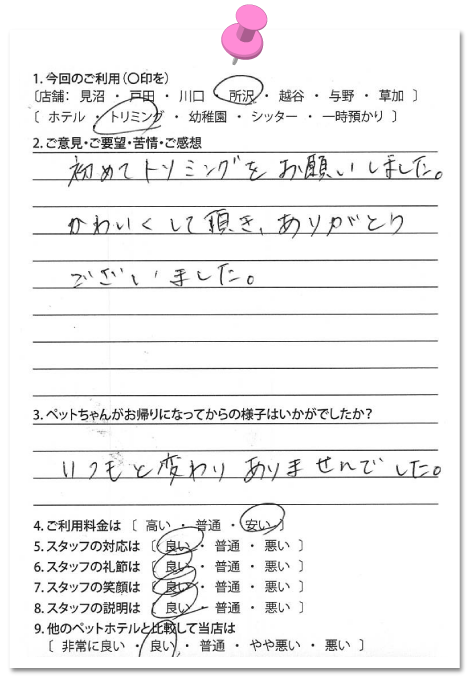 1. 今回のご利用(〇印を)
〔店舗: 見沼 ・ 戸田 ・ 川口 ・ 所沢 ・ 越谷 ・ 与野 ・ 草加 〕
〔 ホテル ・ トリミング ・ 幼稚園 ・ シッター ・ 一時預かり 〕
2. ご意見・ご要望・苦情・ご感想
初めてトリミングをお願いしました。
かわいくして頂き、ありがとう
ございました。
3. ペットちゃんがお帰りになってからの様子はいかがでしたか?
いつもと変わりありませんでした。
4. ご利用料金は 〔 高い ・ 普通 ・ 安い 〕
5. スタッフの対応は 〔 良い ・ 普通 ・ 悪い 〕
6. スタッフの礼節は 〔 良い ・ 普通 ・ 悪い 〕
7. スタッフの笑顔は 〔 良い ・ 普通 ・ 悪い 〕
8. スタッフの説明は 〔 良い ・ 普通 ・ 悪い 〕
9. 他のペットホテルと比較して当店は
〔 非常に良い ・ 良い ・ 普通 ・ やや悪い ・ 悪い 〕